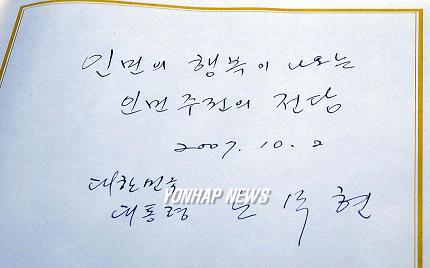 인민의 행복이 나오는
인민주권의 전당
2007. 10. 2
대한민국
대통령 노무현
YONHAP NEWS